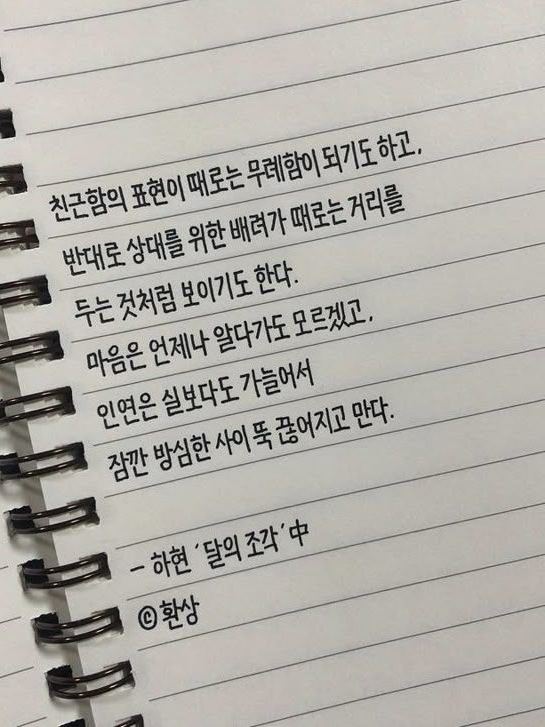 친근함의 표현이 때로는 무례함이 되기도 하고,
반대로 상대를 위한 배려가 때로는 거리를
두는 것처럼 보이기도 한다.
마음은 언제나 알다가도 모르겠고,
인연은 실보다도 가늘어서
잠깐 방심한 사이 뚝 끊어지고 만다.
- 하현 ´달의 조각´ 中
©환상